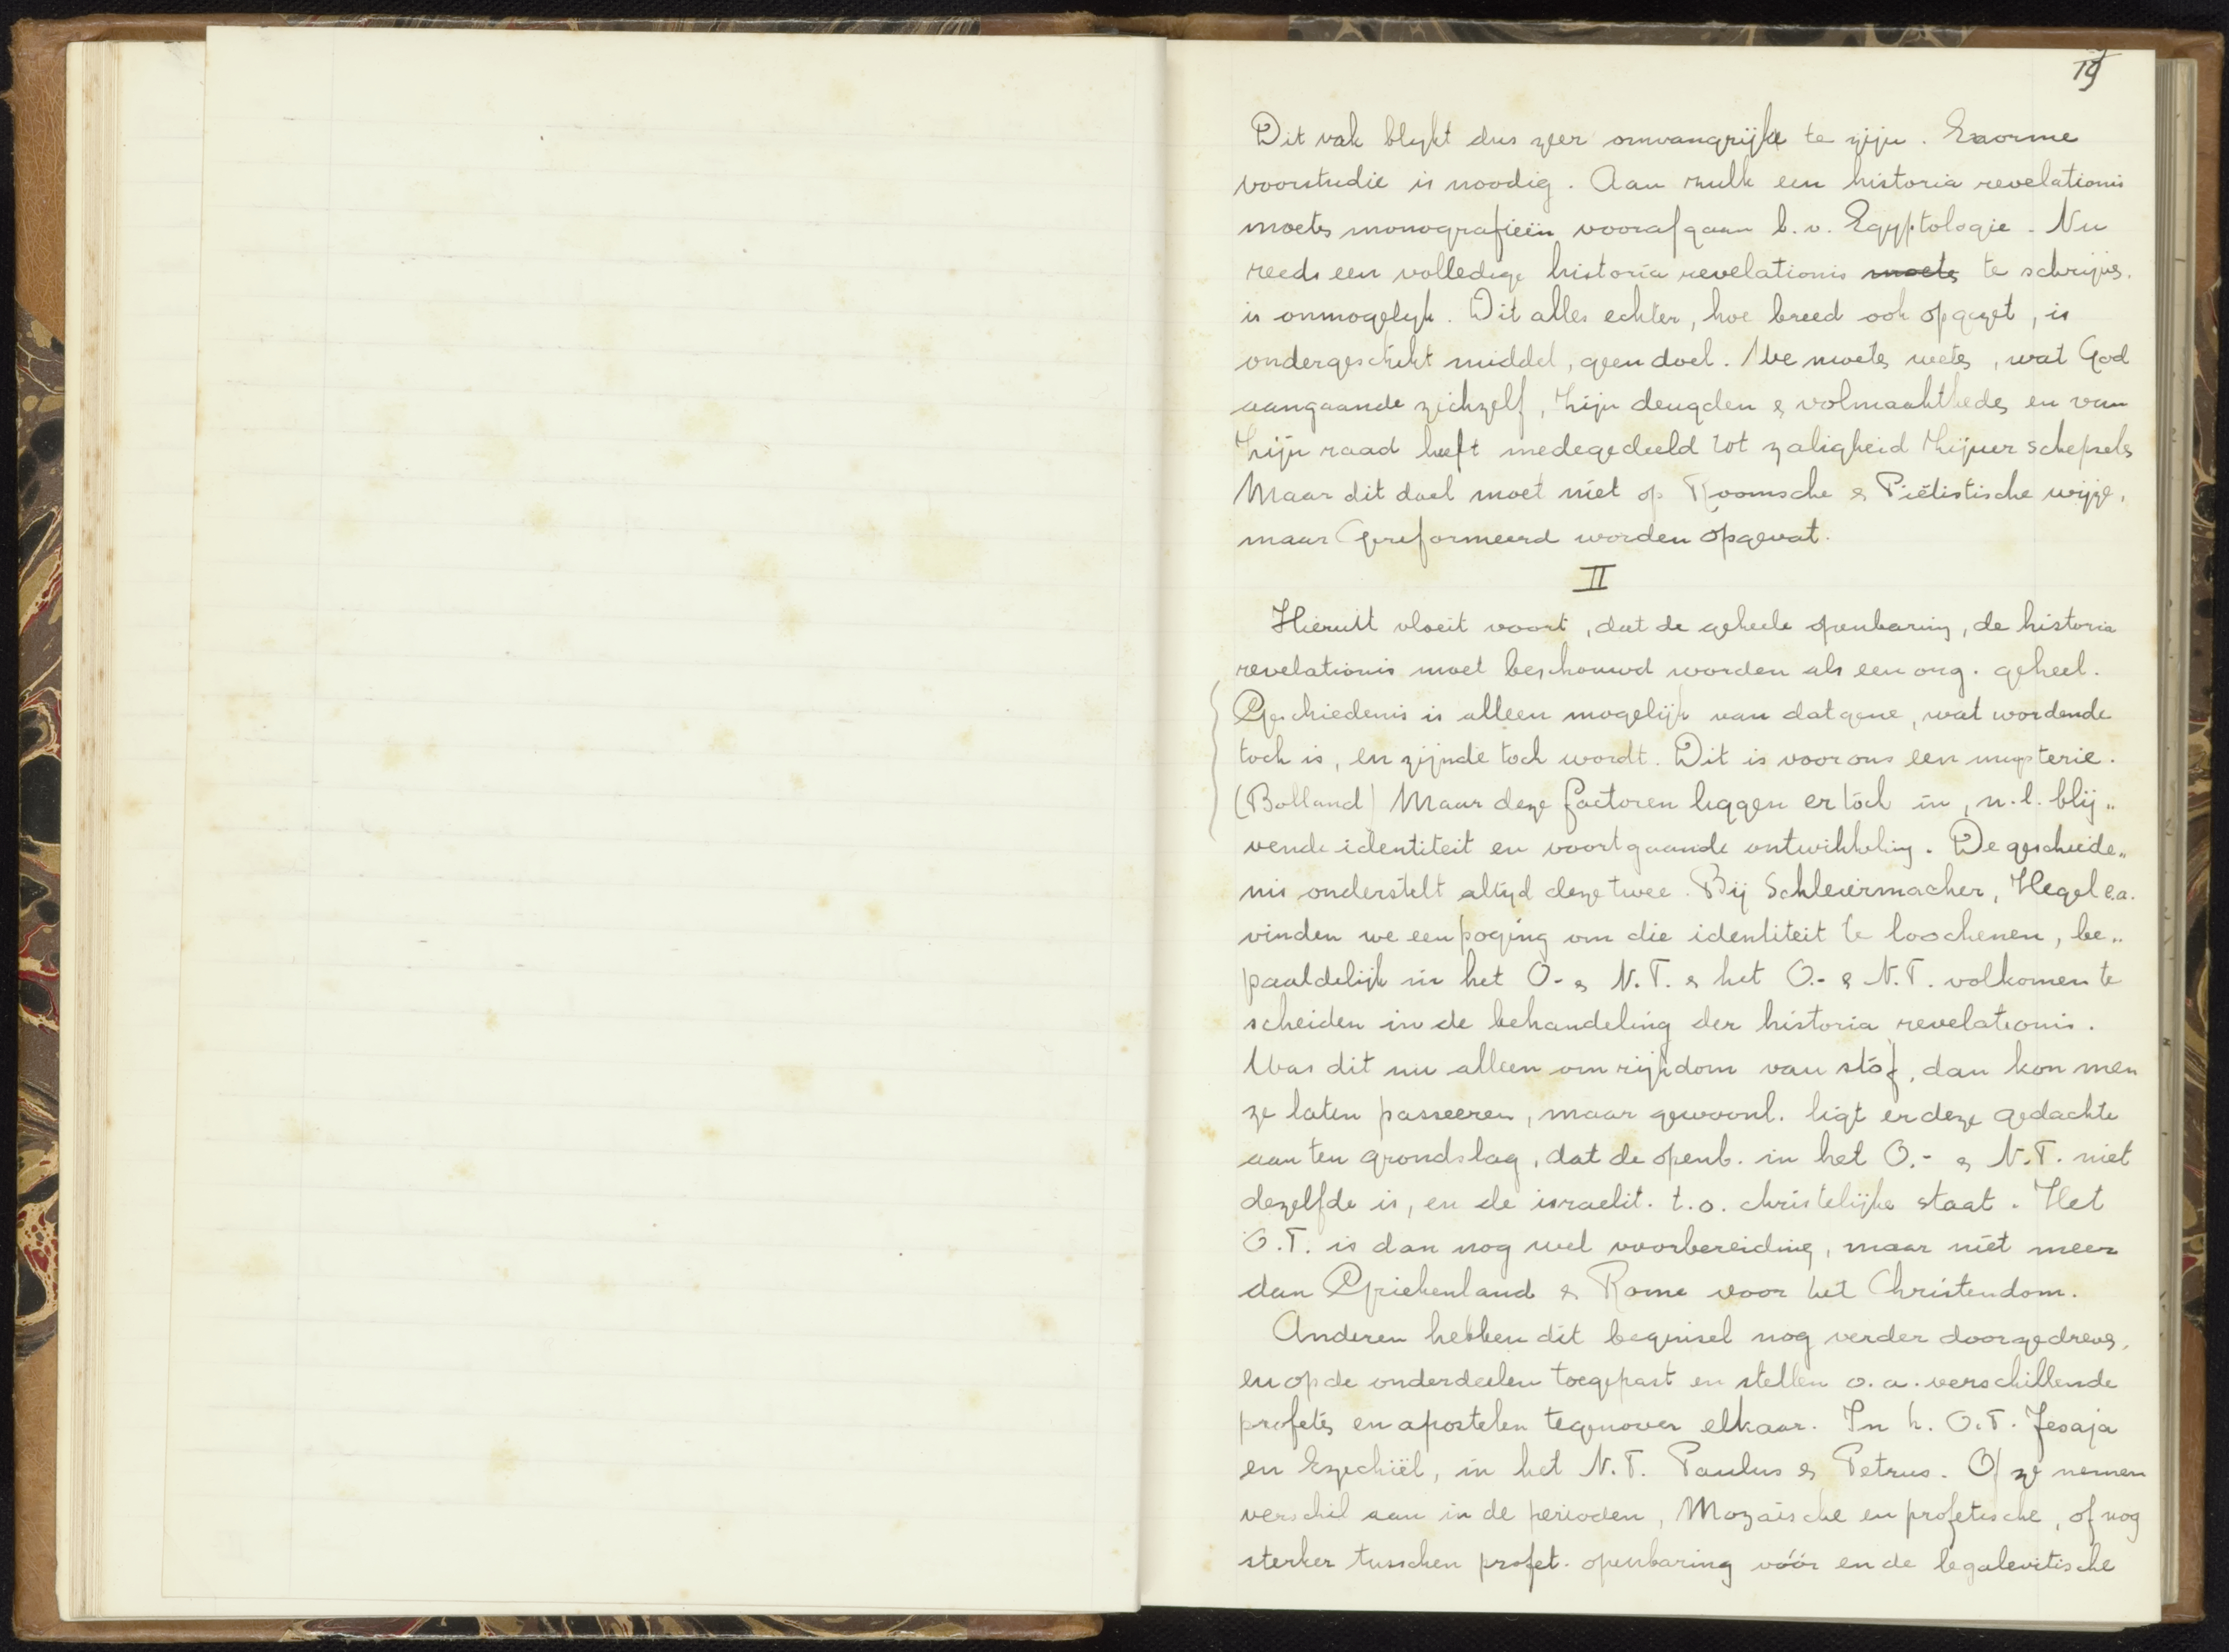 19
Dit vak blykt dus zeer omvangrijk te zijn. Enorme
voorstudie is noodig. Aan zulk een historia revelationis
moeten monografieën voorafgaan b.v. Egyptologie. Nu
reeds een volledige historia revelationis moeten te schrijven.
is onmogelyk. Dit alles echter, hoe breed ook opgezet, is
ondergeschikt middel, geen doel. We moeten weten, wat God
aangaande zichzelf, Zijn deugden & volmaaktheden en van
Zijn raad heeft medegedeeld tot zaligheid Zijner schepselen
Maar dit doel moet niet op Roomsche & Piëtistische wijze,
maar Gereformeerd worden opgevat.
II
Hieruit vloeit voort, dat de geheele openbaring, de historia
revelationis moet beschouwd worden als een org. geheel.
Geschiedenis is alleen mogelijk van datgene, wat wordende
toch is, en zijnde toch wordt. Dit is voor ons een mysterie.
(Bolland) Maar deze factoren liggen er tóch in, n.l. blij„
vende identiteit en voortgaande ontwikkeling. De geschiede„
nis onderstelt altyd deze twee. Bij Schleiermacher, Hegel e.a.
vinden we een poging om die identiteit te loochenen, be„
paaldelijk in het O.- & N.T. & het O.- & N.T. volkomen te
scheiden in de behandeling der historia revelationis.
Was dit nu alleen om rijkdom van stóf, dan kon men
ze laten passeeren, maar gewoonl. ligt er deze gedachte
aan ten grondslag, dat de openb. in het O.- & N.T. niet
dezelfde is, en de israelit. t.o. christelijke staat. Het
O.T. is dan nog wel voorbereiding, maar niet meer
dan Griekenland & Rome voor het Christendom.
Anderen hebben dit beginsel nog verder doorgedreven,
en op de onderdeelen toegepast en stellen o.a. verschillende
profeten en apostelen tegenover elkaar. In h. O.T. Jesaja
en Ezechiël, in het N.T. Paulus & Petrus. Of ze nemen
verschil aan in de perioden, Mozaïsche en profetische, of nog
sterker tusschen profet. openbaring vóór en de legalevitische